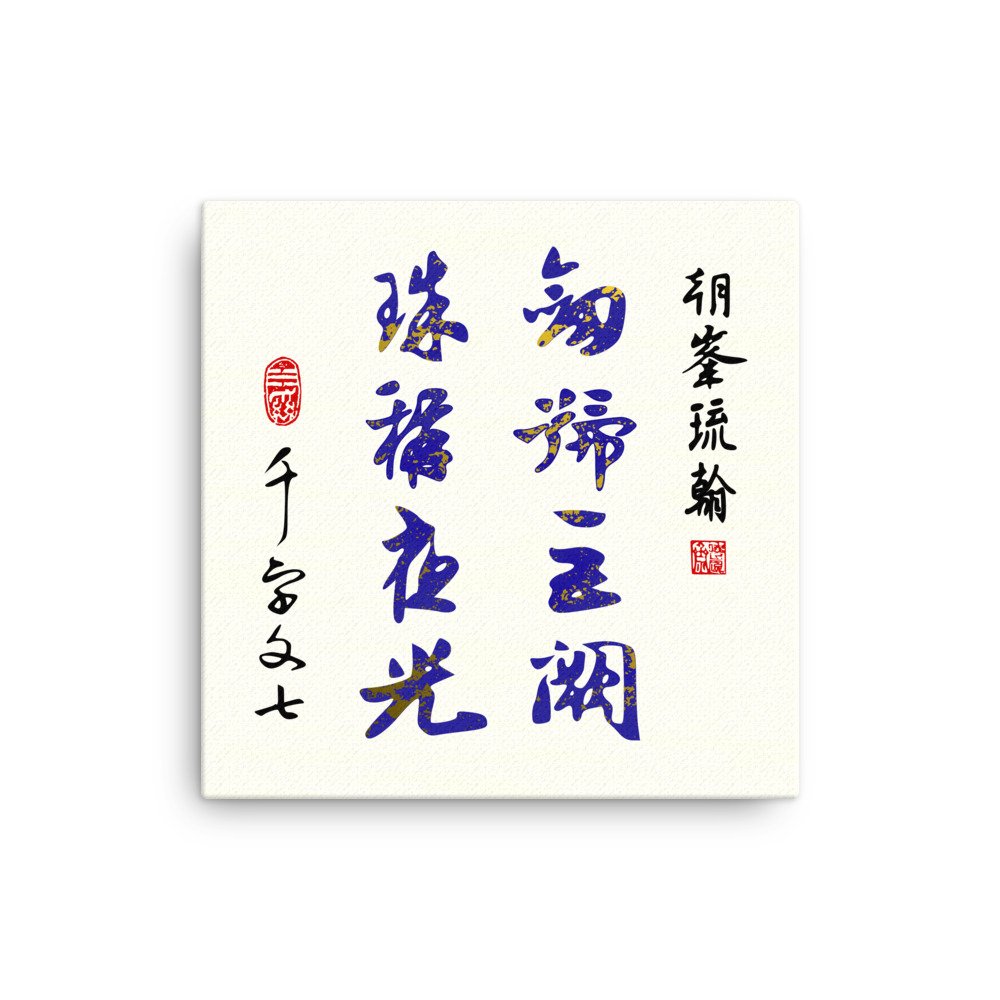 朝峯琉翰
劍號巨闕
珠稱夜光
千字文七